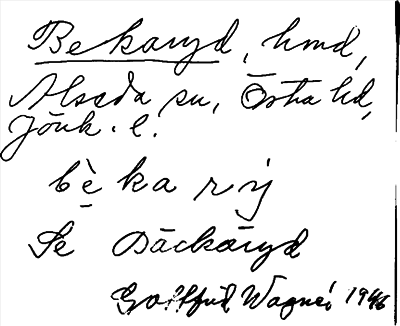 Bekaryd, hmd,
Alseda sn, Östra hd,
Jönk. l.
bè̱ka ry̨
Se Bäckaryd
Gottfrid Wagnér 1946